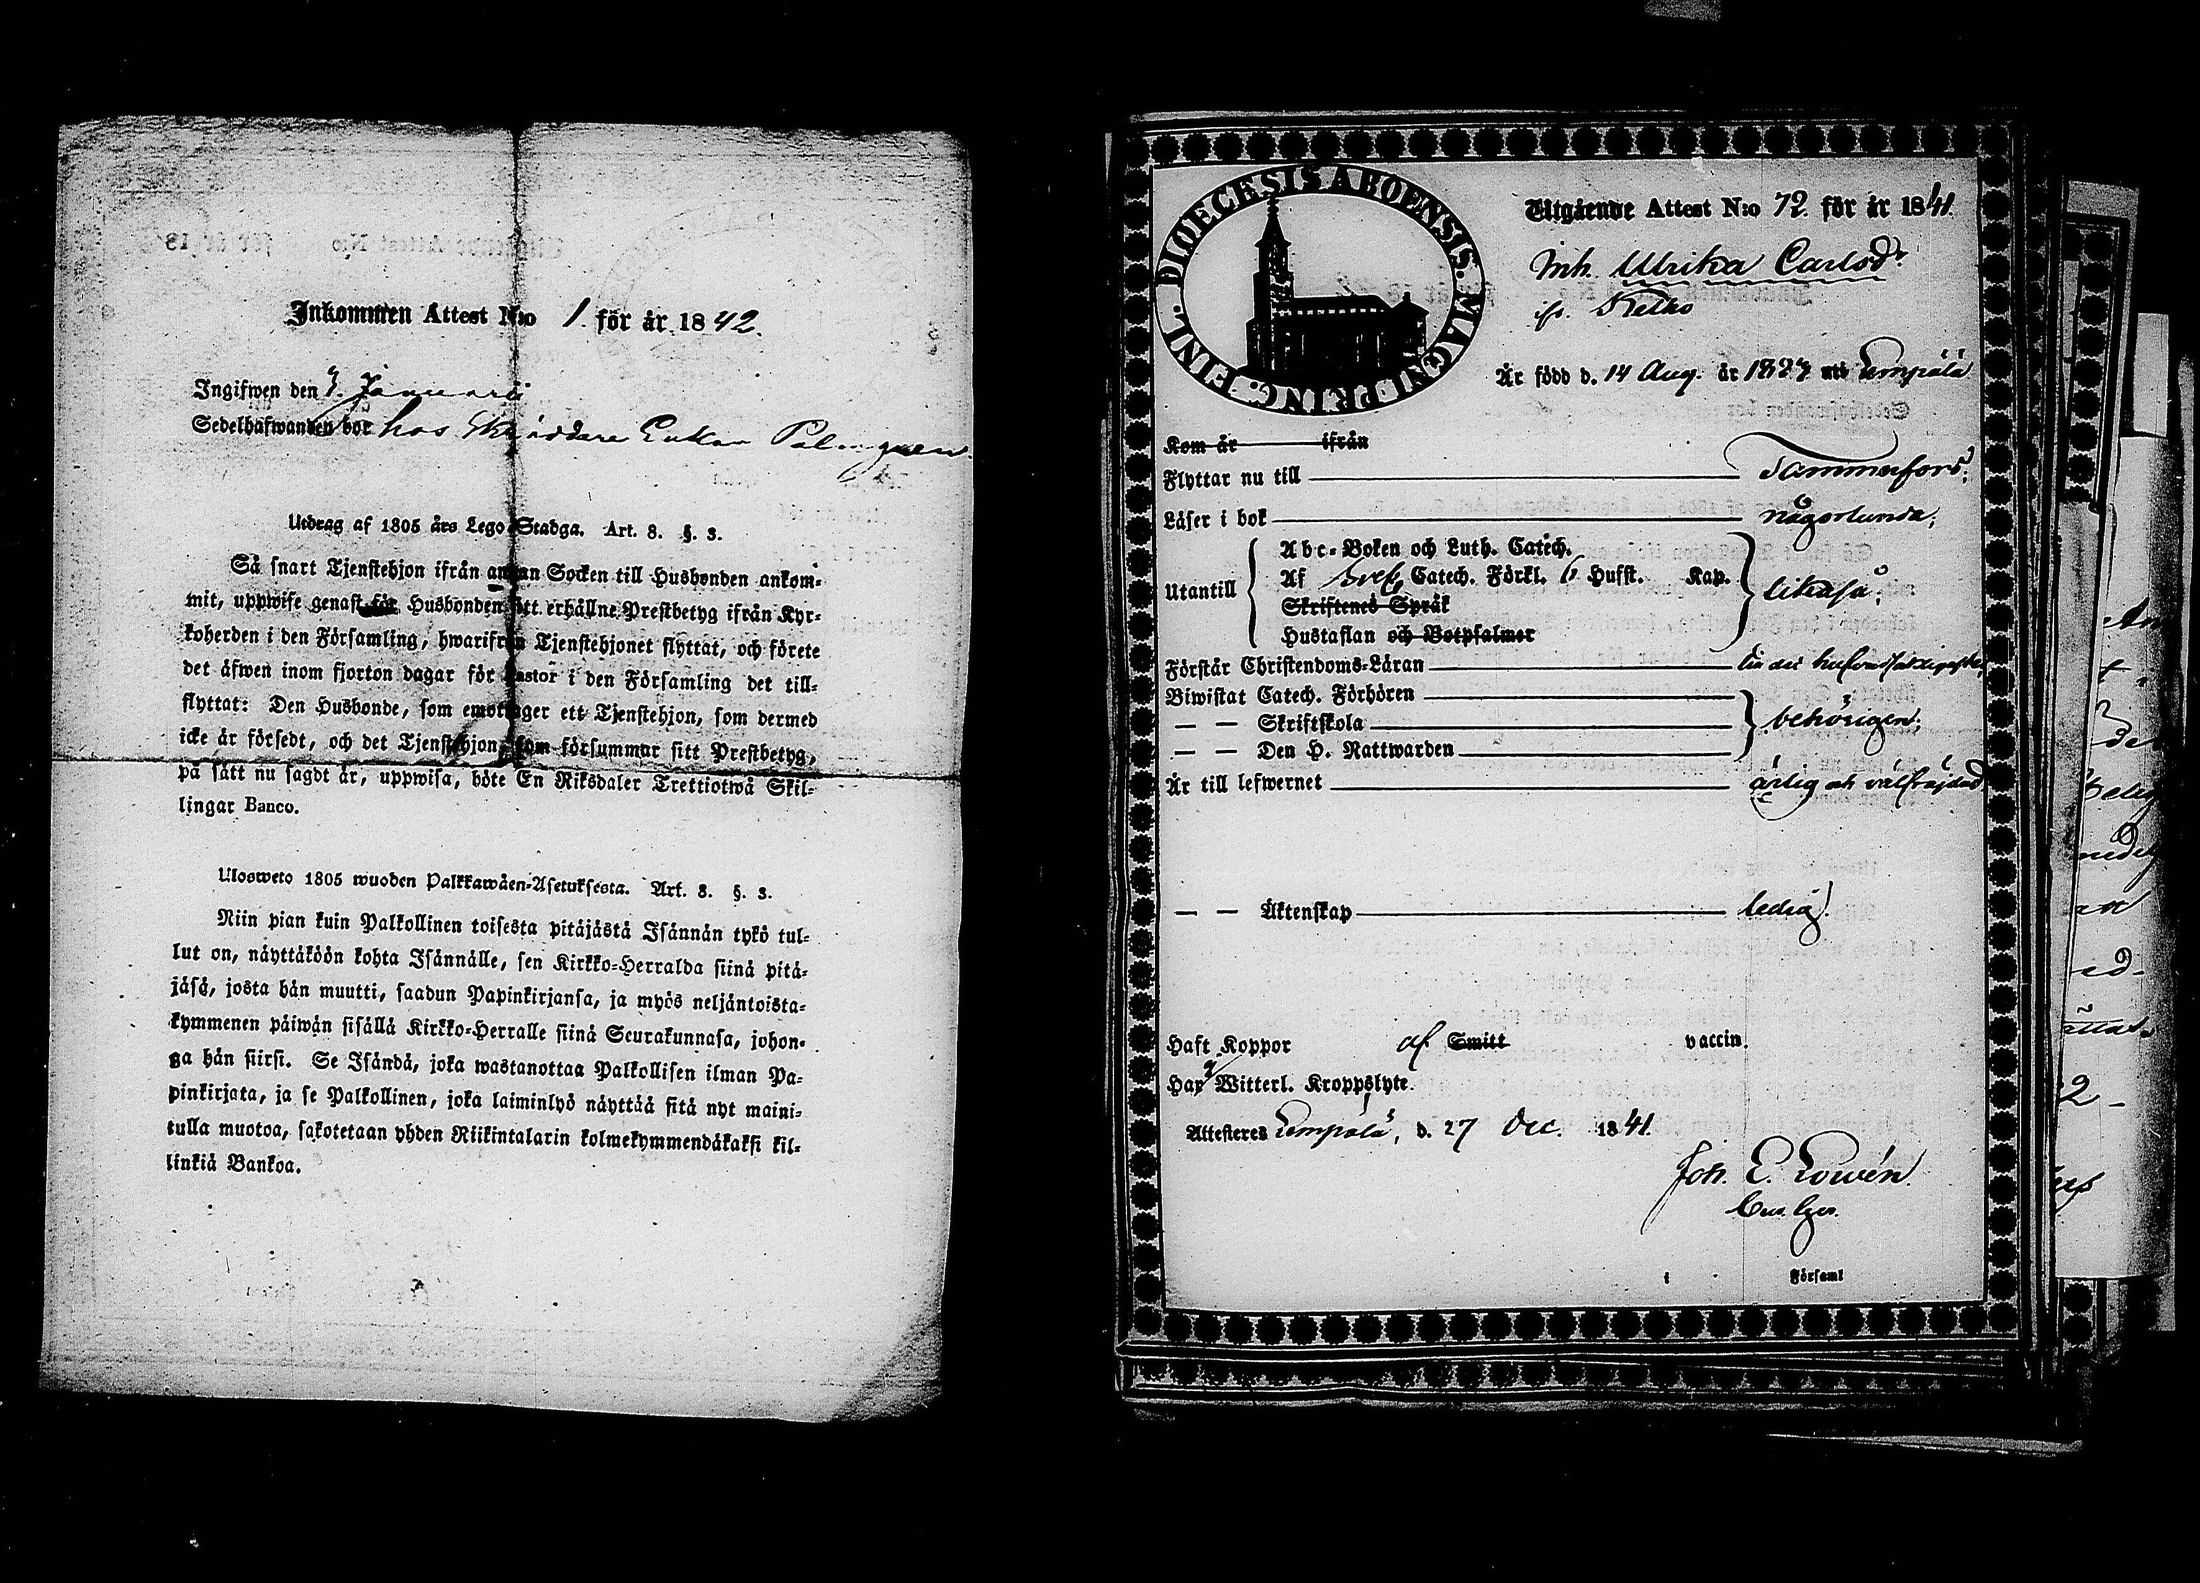 Inkommen Attest N:o 1. för år 1842.
Ingifwen den 3. Januarii
Sedelhafwanden bor hos Skräddare Enkan Palmgren.
Utdrag af 1805 års Lego-Stadga. Art. 8. §. 3.
Så snart Tjenstehjon ifrån annan Socken till Husbonden ankom-
mit, uppwise genast för Husbonden sitt erhållne Prestbetyg ifrån Kyr-
koherden i den Församling, hwarifrån Tjenstehjonet flyttat, och förete
det äfwen inom fjorton dagar för Pastor i den Församling det till-
flyttat: Den Husbonde, som emottager ett Tjenstehjon, som dermed
icke är försedt, och det Tjenstehjon, som försummar sitt Prestbetyg,
på sätt nu sagdt är, uppwisa, böte En Riksdaler Trettiotwå Skil-
lingar Banco.
Ulosweto 1805 wuoden Palkkawäen-Asetuksesta. Art. 8. §. 3.
Niin pian kuin Palkollinen toisesta pitäjästä Isännän tykö tul-
lut on, näyttäköön kohta Isännälle, sen Kirkko-Herralda siinä pitä-
jäsä, josta hän muutti, saadun Papinkirjansa, ja myös neljäntoista-
kymmenen päiwän sisällä Kirkko-Herralle siinä Seurakunnasa, johon-
ga hän siirsi. Se Isändä, joka wastanottaa Palkollisen ilman Pa-
pinkirjata, ja se Palkollinen, joka laiminlyö näyttää sitä nyt maini-
tulla muotoa, sakotetaan yhden Riikintalarin kolmekymmendäkaksi kil-
linkiä Bankoa.
DIOECESIS ABOENSIS. MAGNI PRINC. FINL.
Utgående Attest N:o 72. för år 1841.
Inh. Ulrika Carlsdr.
Är född d. 14 Aug. år 1827 uti Lempälä
Kom år ifrån
Flyttar nu till Tammerfors.
Läser i bok någorlunda;
Abc-Boken och Luth. Catech.
Utantill Af Sveb. Catech. Förkl. 6 Hufst. Kap. likaså;
Skriftenes Språk
Hustaflan och Botpsalmer
Förstår Christendoms-Läran
Biwistat Catech. Förhören
— — Skriftskola behörigen.
— — Den H. Nattwarden
Är till lefwernet ärlig och välfräjdad
— — Äktenskap ledig.
Haft Koppor af Smitt vaccin.
Har Witterl. Kroppslyte.
Attesteres Lempälä, d. 27 Dec. 1841.
Joh. E. Lowén.
i Församl